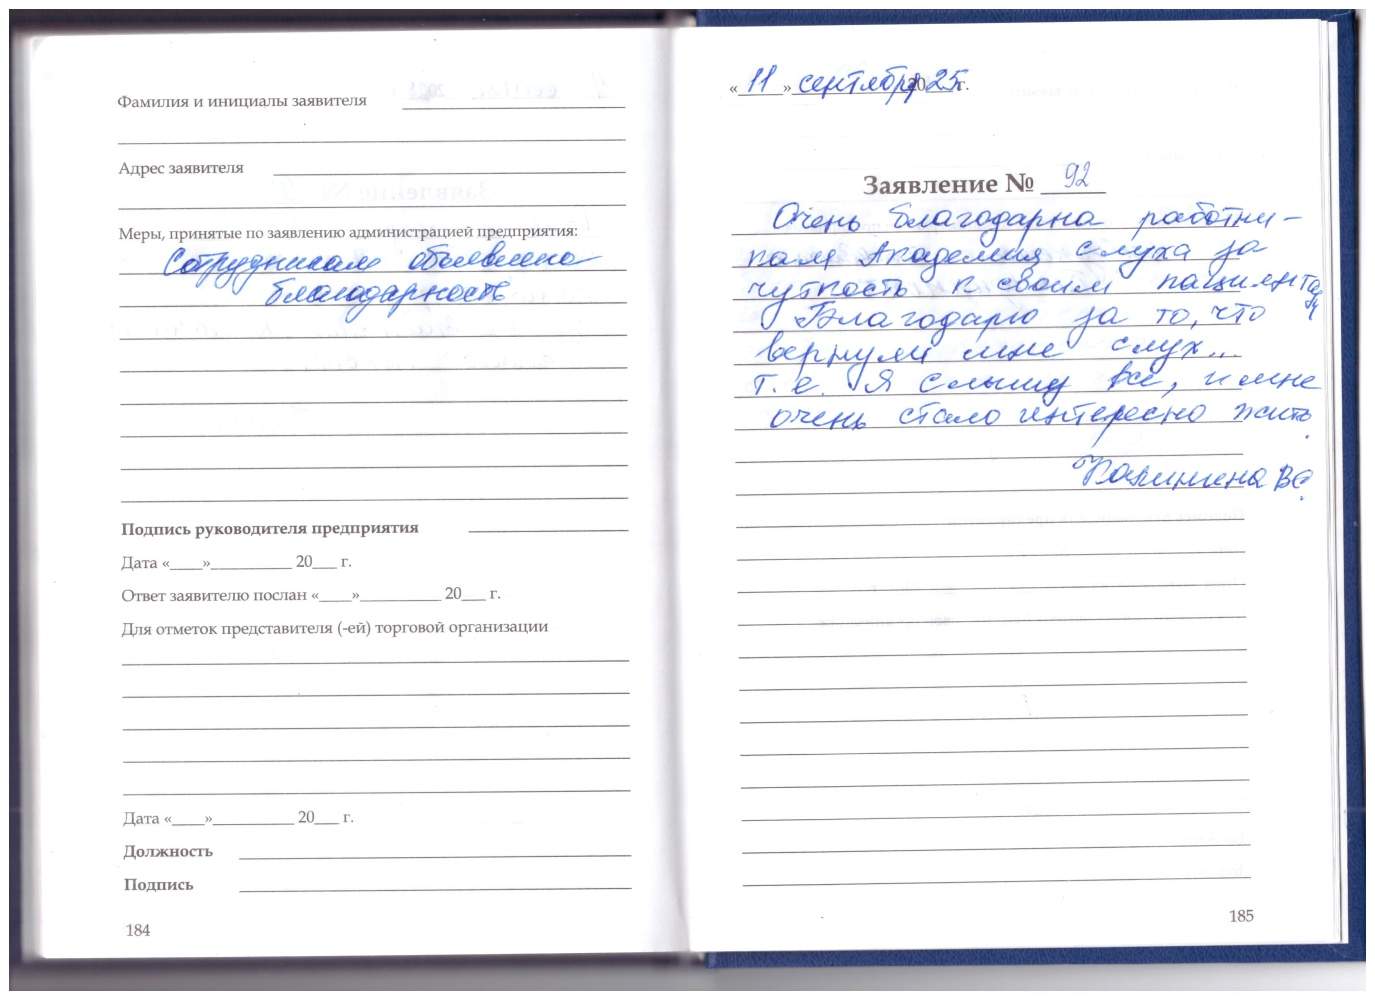 Фамилия и инициалы заявителя
Адрес заявителя
Меры, принятые по заявлению администрацией предприятия:
Сотрудникам объявлена
благодарность
Подпись руководителя предприятия
Дата «____»__________ 20___ г.
Ответ заявителю послан «____»__________ 20___ г.
Для отметок представителя (-ей) торговой организации
Дата «____»__________ 20___ г.
Должность
Подпись
184
« 11 » сентября 2025 г.
Заявление № 92
Очень благодарна работни-
кам Академия слуха за
чуткость к своим пациентам
Благодарю за то, что
вернули мне слух...
т.е. Я слышу все, и мне
очень стало интересно жить.
ВС.
185